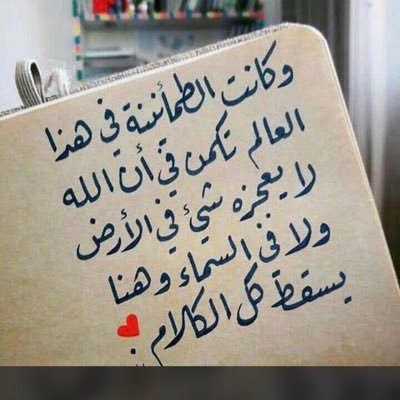 وكانت الطمأنينة في هذا
العالم تكمن في أن الله
لا يعجزه شيئ في الأرض
ولا في السماء وهنا
يسقط كل الكلام